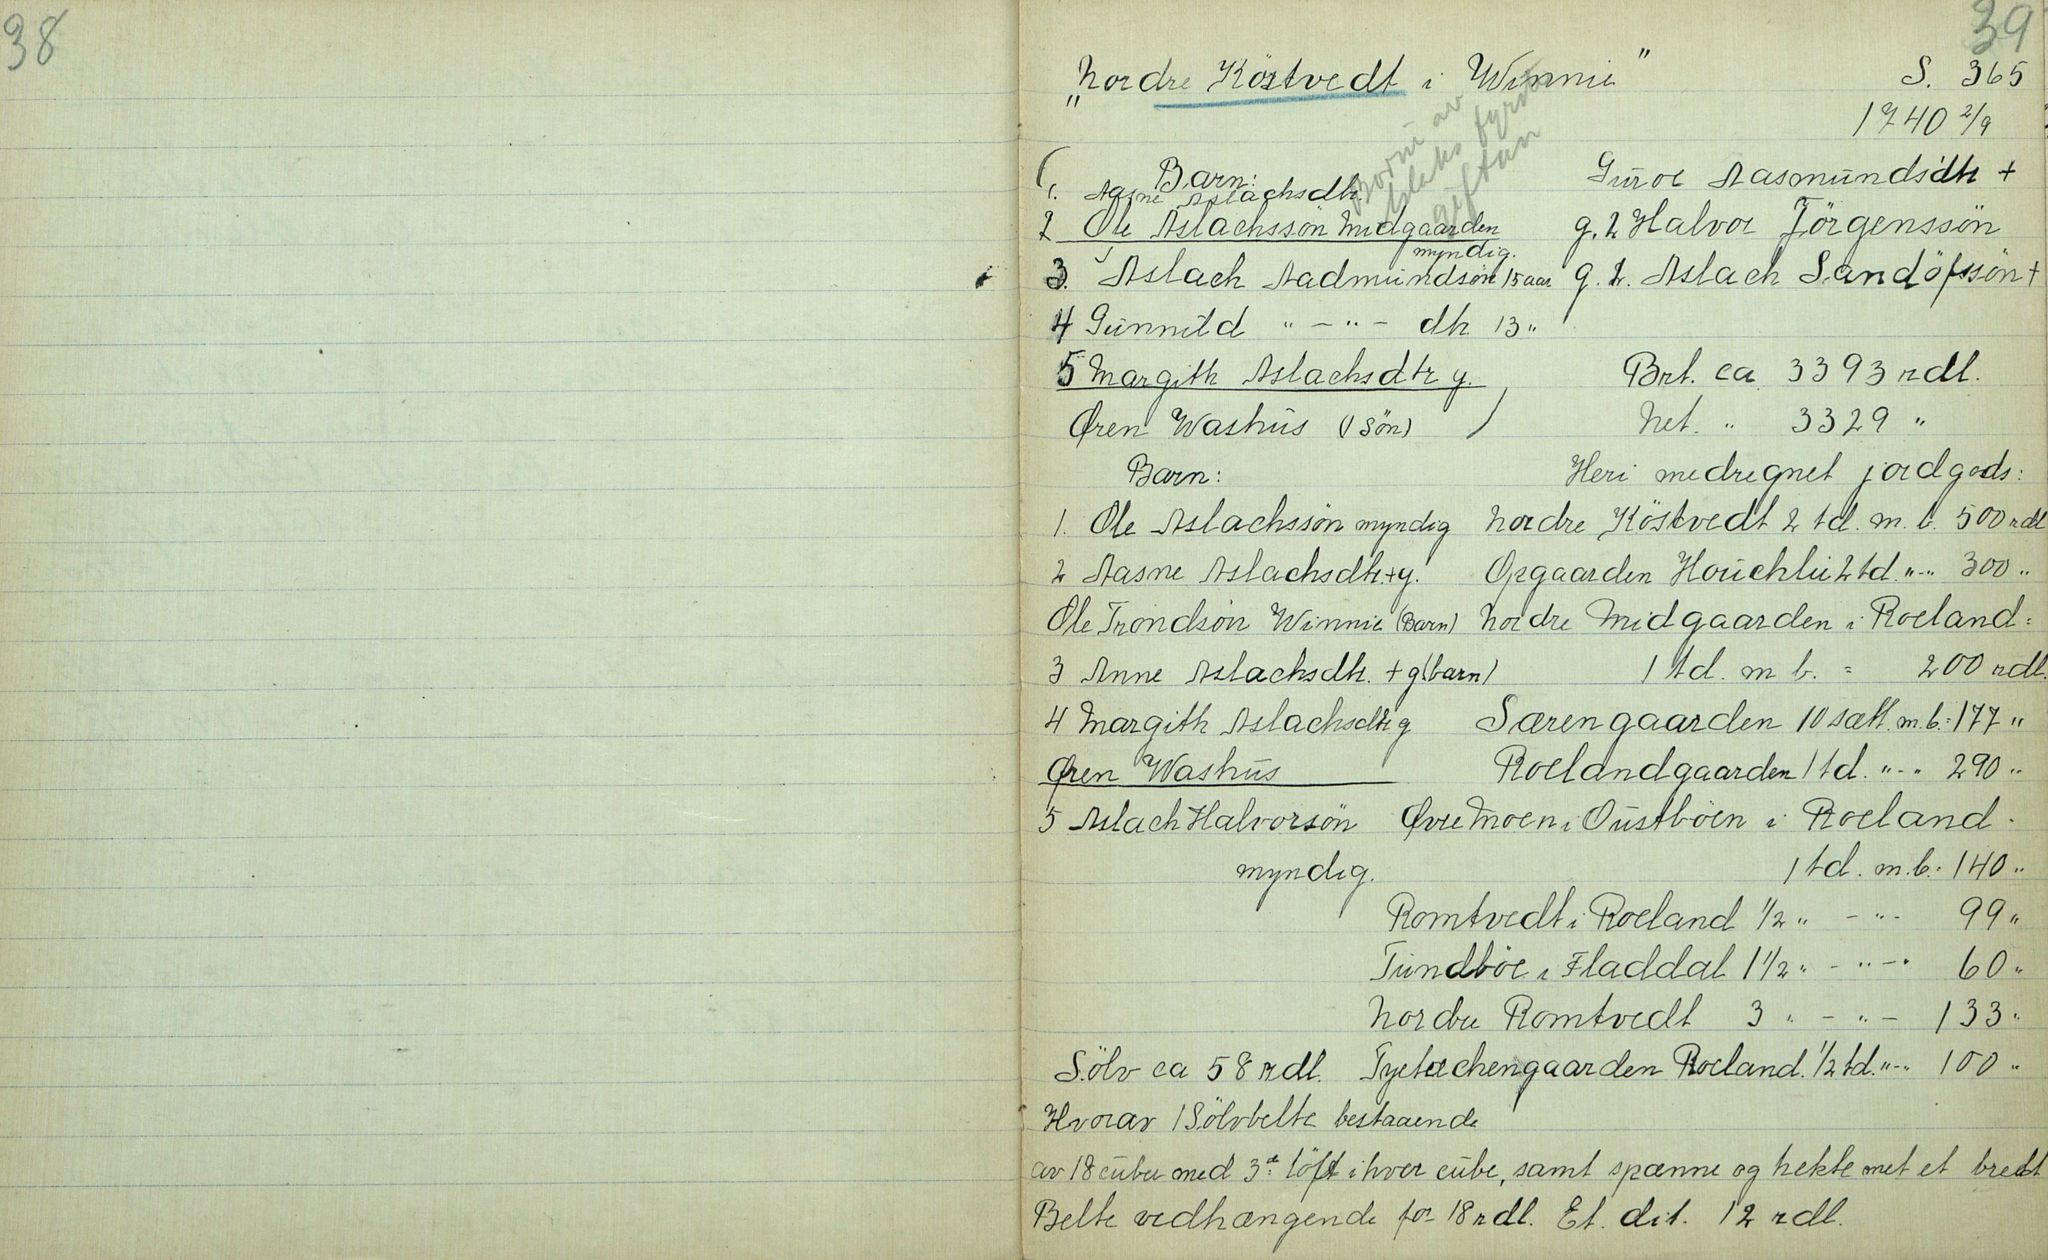 38
39
"Nordre Köstvedt i Winnie" S. 365
1740 2/9
Borni av Aslaks fyrste giftar
Barn: Guroe Aasmundsdtr +
1. Aasne Aslachsdtr.
2 Ole Aslachssön Midgaarden g. 2 Halvor Jörgenssön
myndig.
3. Aslach Aadmundsön 15 aar g. 1. Aslach Sandöfssön +
4 Gunnild " - " - dtr 13 "
5 Margith Aslachsdtr g. Brt. ca 3393 rdl.
Ören Washus (1 Sön) Net. " 3329 "
Barn: Heri medregnet jordgods:
1. Ole Aslachssön myndig Nordre Köstvedt 2 td. m. b. 500 rdl
2 Aasne Aslachsdtr + g. Opgaarden Houchlii 2 td. " - " 300 "
Ole Trondsön Winnie (Barn) Nordre Midgaarden i Roeland =
3 Anne Aslachsdtr. + g (barn) 1 td. m b. = 200 rdl.
4 Margith Aslachsdtr g Særengaarden 10 sætt. m.b. = 177 "
Øren Washus Roelandgaarden 1 td. " - " 290 "
5 Aslach Halvorsön Øvre Moen i Oustböen i Roeland.
myndig. 1 td. m.b. = 140 "
Romtvedt i Roeland 1/2 " - " - 99 "
Tundböe i Fladdal 1 1/2 " - " - " 60 "
Nordre Romtvedt 3 " - " - 133 "
Sölv ca 58 rdl. Tyetachengaarden Roeland. 1/2 td. " - " 100 "
Hvorav 1 Sölvbelte bestaaende
av 18 cuber med 3de löft i hver cube, samt spænne og hekte met et bredt
Belte vedhængende for 18 rdl. Et. dit. 12 rdl.